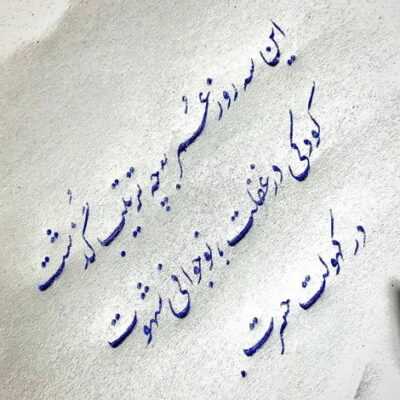 این سه روز عُمر به چه ترتیب گذشت
کودکی در غفلت، نوجوانی شهوت
در کهولت حسرت